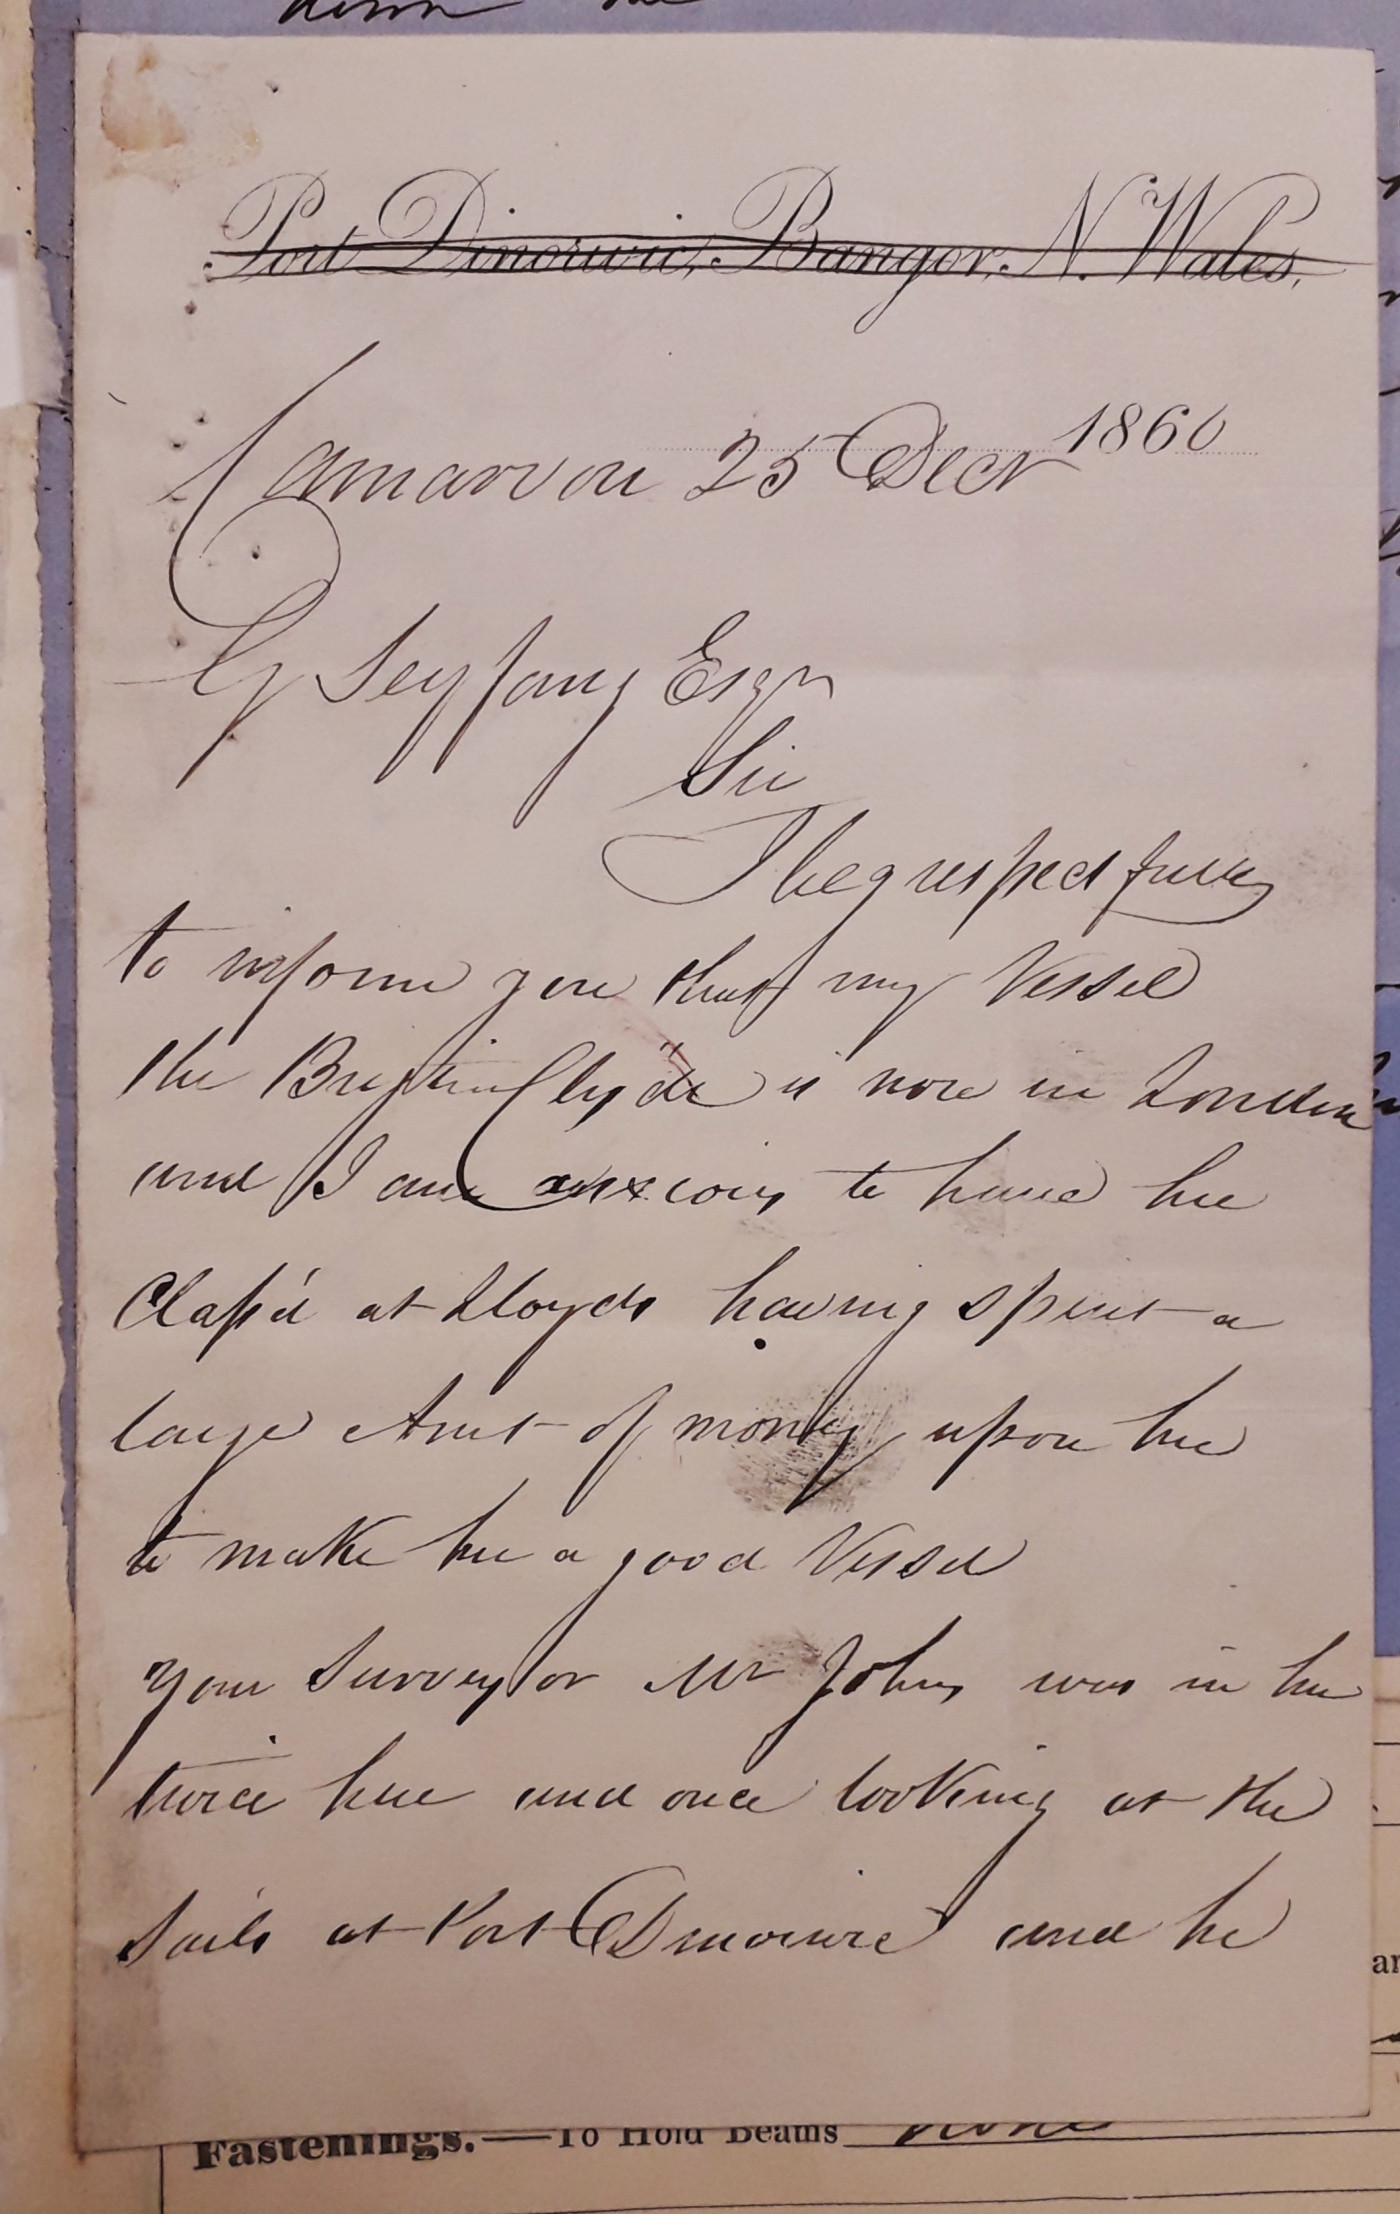 Port Dinorwic, Bangor, N. Wales.
Carnarvon 25 Decr 1860
G Seyfang Esqr
Sir
I beg respectfully
to inform you that my Vessel
the Brigtin Clyde is now in London
and I am anxious to have her
Class'd at Lloyds having spent a
large Amt of money upon her
to make her a good Vessel
your Surveyor Mr Johns was in her
twice here and once looking at the
Sails at Port Dinorwic and he
Fastenings.—To Hold Beams none